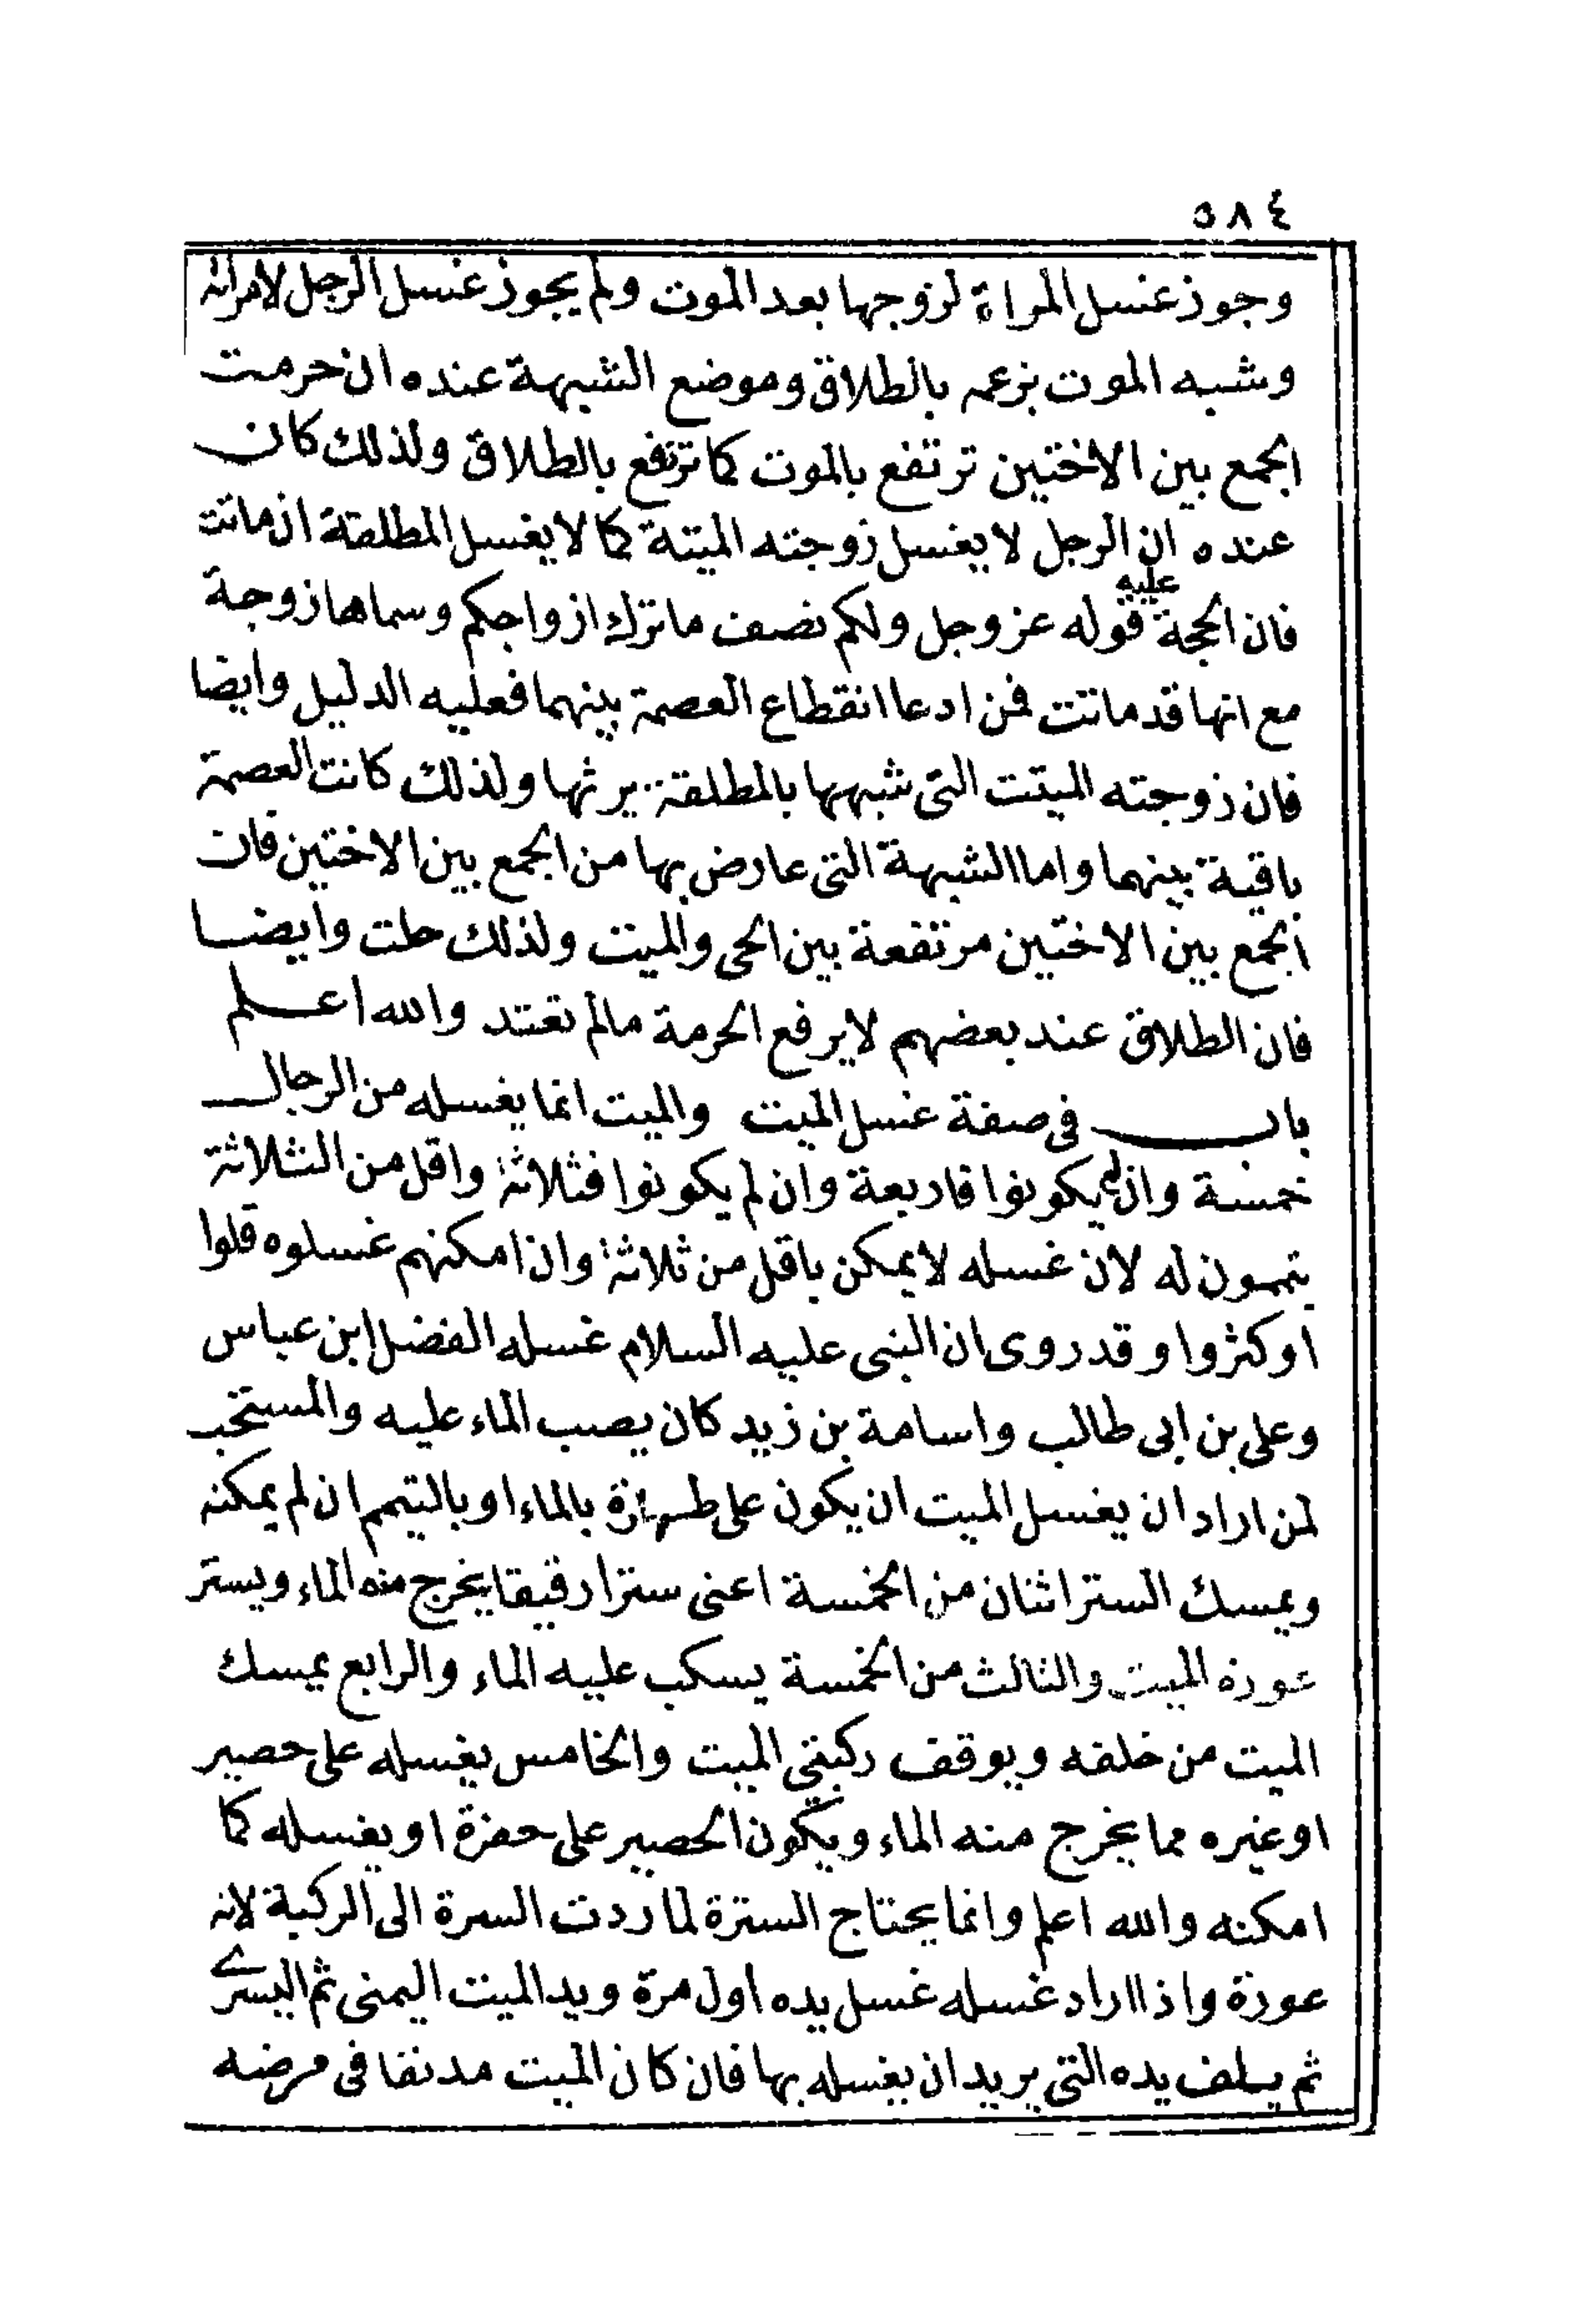 ٥٨٤
وجوز غسل المراة لزوجها بعد الموت ولم يجوز غسل الرجل لامراته
وشبه الموت بزعمه بالطلاق وموضع الشبهة عنده ان حرمت
الجمع بين الاختين ترتفع بالموت كما ترتفع بالطلاق ولذلك كان
عنده ان الرجل لا يغسل زوجته الميتة كما لا يغسل المطلقة ان ماتت
فان الحجة عليه قوله عز وجل ولكم نصف ما ترك ازواجكم وسماها زوجة
مع انها قد ماتت فمن ادعا انقطاع العصمة بينهما فعليه الدليل وايضا
فان زوجته الميتت التى شبهها بالمطلقة يرثها ولذلك كانت العصمة
باقية بينهما واما الشبهة التى عارض بها من الجمع بين الاختين فان
الجمع بين الاختين مرتفعة بين الحى والميت ولذلك حلت وايضا
فان الطلاق عند بعضهم لا يرفع الحرمة مالم تعتد والله اعلم
باب فى صفة غسل الميت والميت انما يغسله من الرجال
خمسة وان لم يكونوا فاربعة وان لم يكونوا فثلاثة واقل من الثلاثة
يتممون له لان غسله لا يمكن باقل من ثلاثة وان امكنهم غسلوه قلوا
او كثروا وقد روى ان النبى عليه السلام غسله الفضل ابن عباس
وعلى بن ابى طالب واسامة بن زيد كان يصب الماء عليه والمستحب
لمن اراد ان يغسل الميت ان يكون على طهارة بالماء او بالتيمم ان لم يمكنه
ويمسك الستر اثنان من الخمسة اعنى سترا رقيقا يخرج منه الماء ويستر
عورة الميت والثالث من الخمسة يسكب عليه الماء والرابع يمسك
الميت من خلفه ويوقف ركبتي الميت والخامس يغسله على حصير
او غيره مما يخرج منه الماء ويكون الحصير على حفرة او يغسله كما
امكنه والله اعلم وانما يحتاج السترة لما ردت السرة الى الركبة لانه
عورة واذا اراد غسله غسل يده اول مرة ويد الميت اليمنى ثم اليسرى
ثم يلف يده التى يريد ان يغسله بها فان كان الميت مدنفا فى مرضه